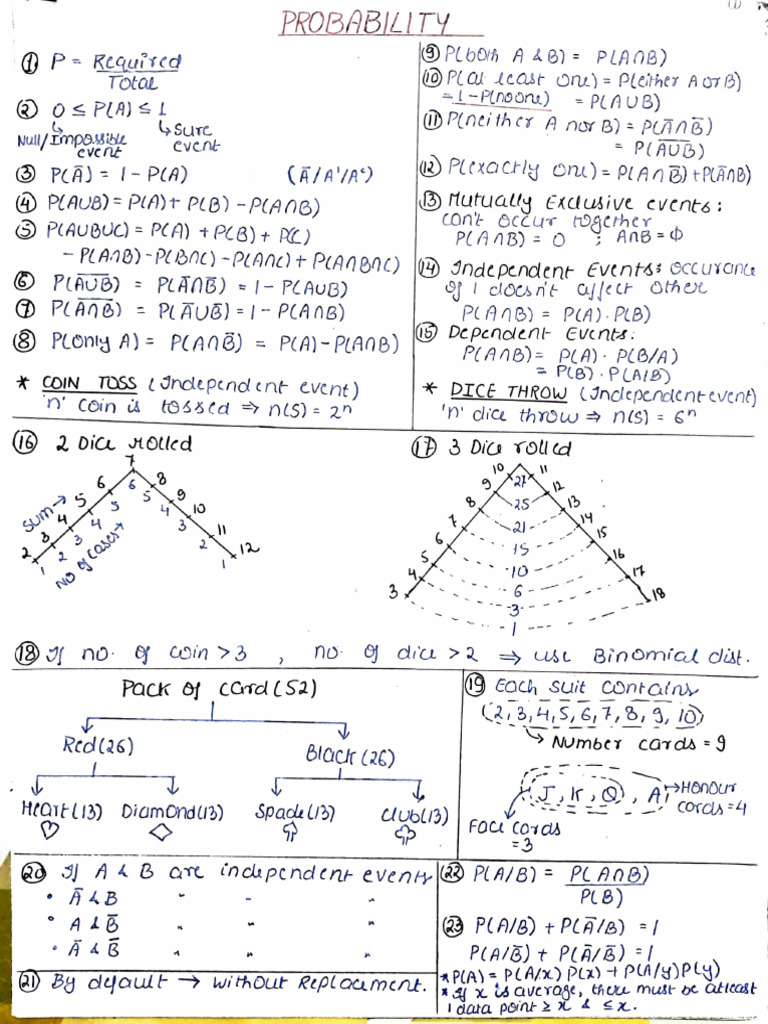 (1)
PROBABILITY
① P = Required
Total
② 0 ≤ P(A) ≤ 1
Null/Impossible event
Sure event
③ P(Ā) = 1 - P(A) (Ā/A'/Aᶜ)
④ P(AUB) = P(A) + P(B) - P(A∩B)
⑤ P(AUBUC) = P(A) + P(B) + P(C)
- P(A∩B) - P(B∩C) - P(A∩C) + P(A∩B∩C)
⑥ P(A̅U̅B̅) = P(Ā∩B̄) = 1 - P(AUB)
⑦ P(A̅∩̅B̅) = P(ĀUB̄) = 1 - P(A∩B)
⑧ P(only A) = P(A∩B̄) = P(A) - P(A∩B)
* COIN TOSS (Independent event)
'n' coin is tossed ⇒ n(S) = 2ⁿ
⑨ P(both A & B) = P(A∩B)
⑩ P(at least one) = P(either A or B)
= 1 - P(no one) = P(AUB)
⑪ P(neither A nor B) = P(Ā∩B̄)
= P(A̅U̅B̅)
⑫ P(exactly one) = P(A∩B̄) + P(Ā∩B)
⑬ Mutually Exclusive events:
can't occur together
P(A∩B) = 0 ; A∩B = Φ
⑭ Independent Events: occurance
of 1 doesn't affect other
P(A∩B) = P(A) . P(B)
⑮ Dependent Events:
P(A∩B) = P(A) . P(B/A)
= P(B) . P(A/B)
* DICE THROW (Independent event)
'n' dice throw ⇒ n(S) = 6ⁿ
⑯ 2 Dice rolled
sum →
2 3 4 5 6 7 8 9 10 11 12
No of cases →
1 2 3 4 5 6 5 4 3 2 1
⑰ 3 Dice rolled
10 11
27
9 12
25
8 13
21
7 14
15
6 15
10
5 16
6
4 17
3
3 18
1
⑱ If no. of coin > 3 , no. of dice > 2 ⇒ use Binomial dist.
Pack of card (52)
Red (26)
Black (26)
Heart (13) Diamond (13) Spade (13) Club (13)
⑲ Each suit contains
(2, 3, 4, 5, 6, 7, 8, 9, 10)
Number cards = 9
J, K, Q , A
Honour cards = 4
Face cards = 3
⑳ If A & B are independent events
• Ā & B " " "
• A & B̄ " " "
• Ā & B̄ " " "
㉑ By default → without Replacement.
㉒ P(A/B) = P(A∩B)
P(B)
㉓ P(A/B) + P(Ā/B) = 1
P(A/B̄) + P(Ā/B̄) = 1
* P(A) = P(A/x) P(x) + P(A/y) P(y)
* If x is average, there must be atleast
1 data point ≥ x & ≤ x.